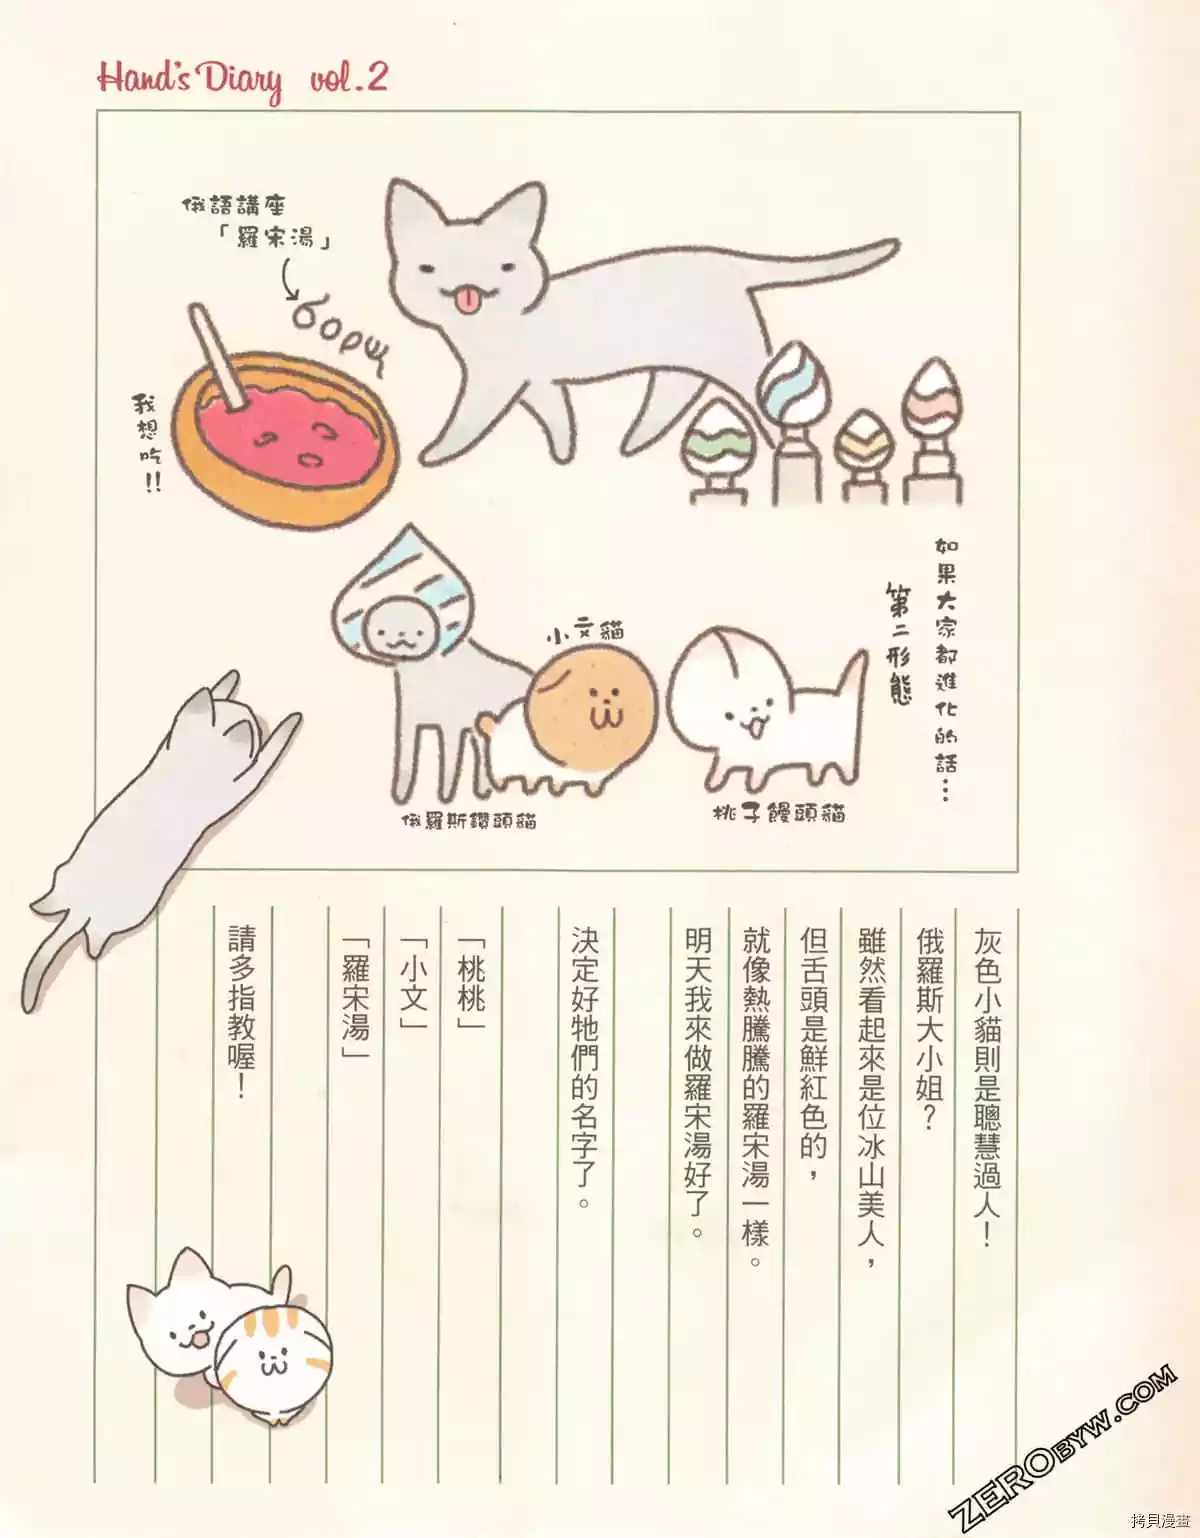 Hand's Diary vol.2
俄語講座
「羅宋湯」
борщ
我想吃!!
如果大家都進化的話…
第二形態
小文貓
俄羅斯鑽頭貓
桃子饅頭貓
灰色小貓則是聰慧過人！
俄羅斯大小姐？
雖然看起來是位冰山美人，
但舌頭是鮮紅色的，
就像熱騰騰的羅宋湯一樣。
明天我來做羅宋湯好了。
決定好牠們的名字了。
「桃桃」
「小文」
「羅宋湯」
請多指教喔！
ZEROBYW.COM
拷貝漫畫